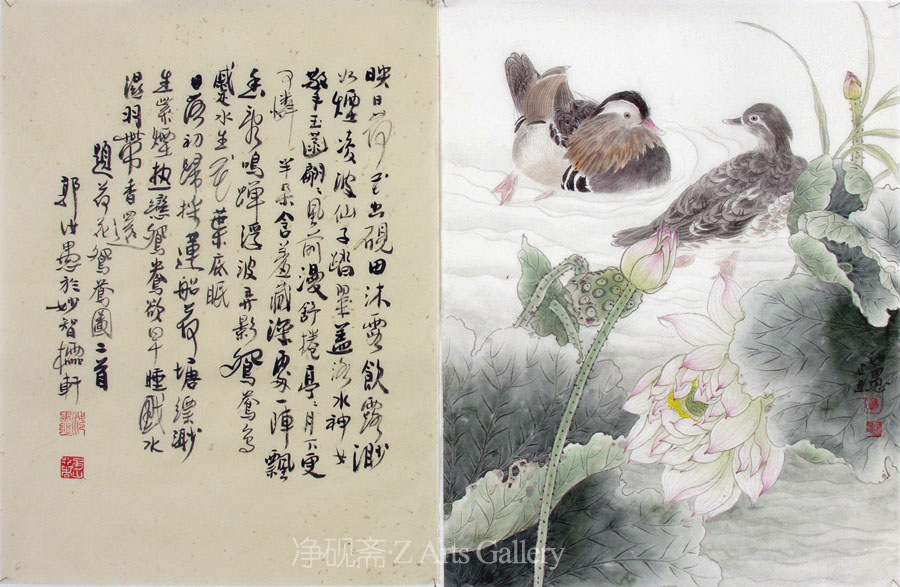 映日荷花出硯田沐雲飲露渺
如煙凌波仙子踏翠蓋洛水神女
擎玉菡翩翩風前漫舒捲亭亭月下更
可憐 半朵含羞藏深處一陣飄
香鳴蟬浮波弄影鴛鴦鳥
戲水生花葉底眠
日落初歸採蓮船荷塘縹渺
生紫煙執戀鴛鴦欲早睡戲水
濕羽帶香還
題荷花鴛鴦圖二首
郭汝愚於妙智軒
汝愚
净砚斋·Z Arts Gallery